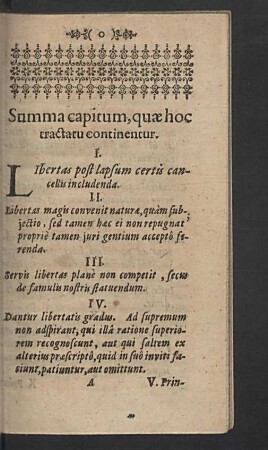 0
Summa capitum, quæ hoc
tractatu continentur.
I.
LIbertas post lapsum certis can-
cellis includenda.
II.
Libertas magis convenit naturæ, quàm sub-
jectio, sed tamen hac ei non repugnat
propriè tamen juri gentium acceptô fe-
renda.
III.
Servis libertas planè non competit, secus
de famulis nostris statuendum.
IV.
Dantur libertatis gradus. Ad supremum
non adspirant, qui illâ ratione superio-
rem recognoscunt, aut qui saltem ex
alterius præscriptô, quid in suô inviti fa-
ciunt, patiuntur, aut omittunt.
A V. Prin-